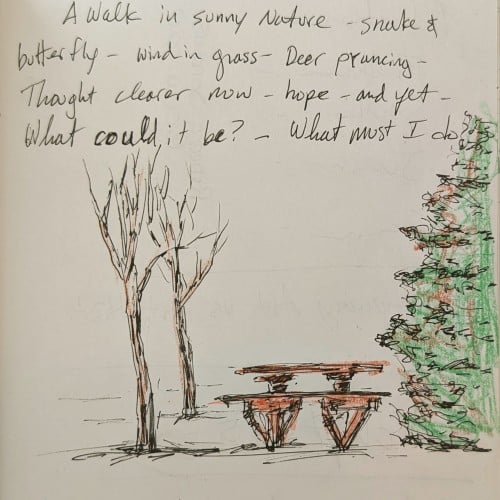 A Walk in sunny Nature - snake &
butterfly - wind in grass - Deer prancing -
Thought clearer now - hope - and yet -
What could it be? - What must I do?